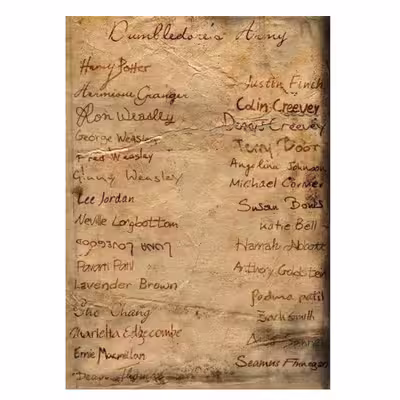 Dumbledore's Army
Harry Potter
Hermione Granger
Ron Weasley
George Weasley
Fred Weasley
Ginny Weasley
Lee Jordan
Neville Longbottom
Luna Lovegood
Parvati Patil
Lavender Brown
Cho Chang
Marietta Edgecombe
Ernie Macmillan
Dean Thomas
Justin Finch
Colin Creevey
Dennis Creevey
Terry Boot
Angelina Johnson
Michael Corner
Susan Bones
Katie Bell
Hannah Abbott
Anthony Goldstein
Padma patil
Zach smith
Seamus Finnegan